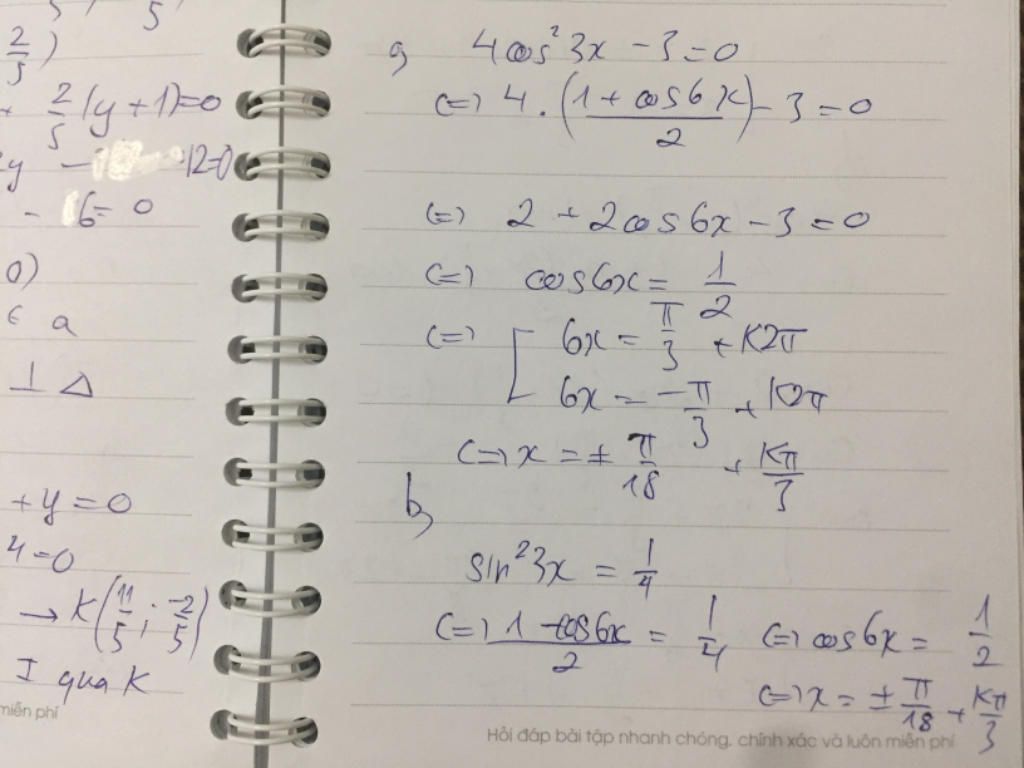 2/5)
+ 2/5 (y + 1) = 0
12=0
- 16 = 0
0)
∈ a
⊥ Δ
+ y = 0
4 = 0
→ K(11/5 ; -2/5)
I qua K
miễn phí
a) 4cos²3x - 3 = 0
(=) 4 . ((1 + cos6x)/2) - 3 = 0
(=) 2 + 2cos6x - 3 = 0
(=) cos6x = 1/2
(=) [ 6x = π/3 + K2π
6x = -π/3 + K2π
(=) x = ± π/18 + Kπ/3
b)
sin²3x = 1/4
(=) (1 - cos6x)/2 = 1/4 (=) cos6x = 1/2
(=) x = ± π/18 + Kπ/3
Hỏi đáp bài tập nhanh chóng, chính xác và luôn miễn phí